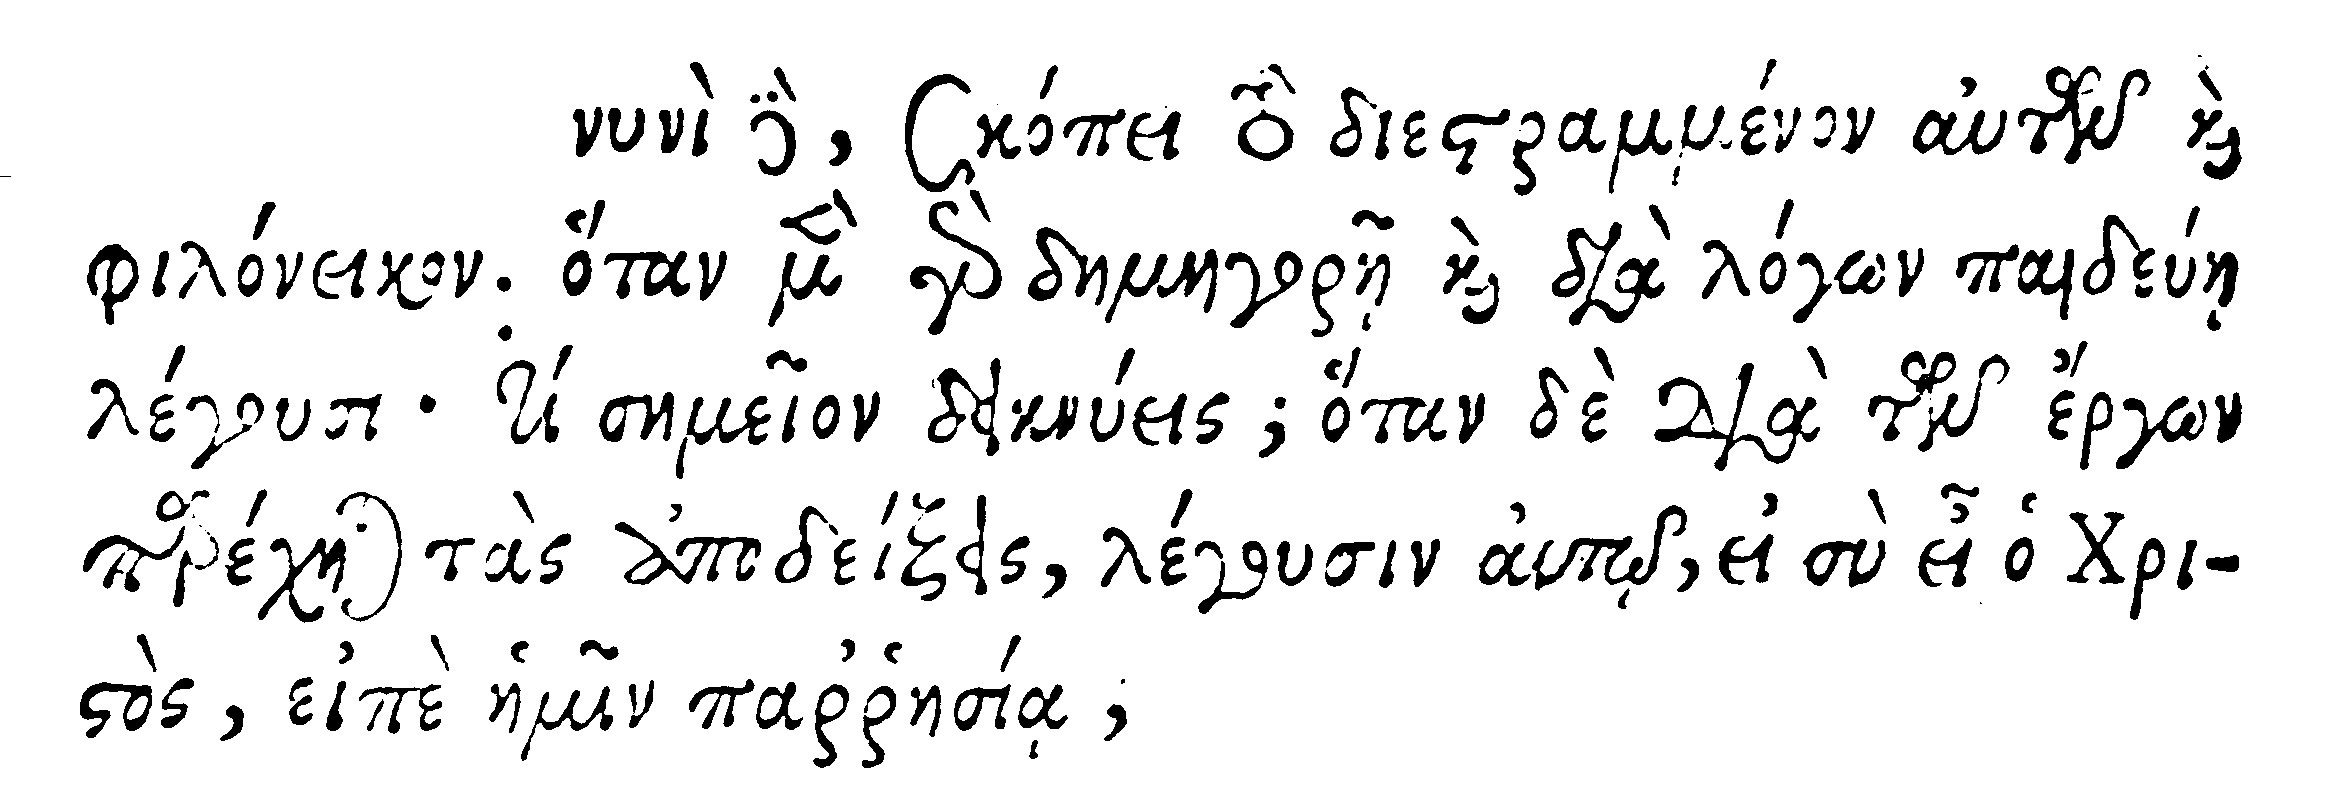 νυνὶ δὲ, σκόπει τὸ διεστραμμένον αὐτῶν καὶ
φιλόνεικον. ὅταν μὲν γὰρ δημηγορῇ καὶ διὰ λόγων παιδεύῃ
λέγουσι· τί σημεῖον δεικνύεις; ὅταν δὲ διὰ τῶν ἔργων
παρέχηται τὰς ἀποδείξεις, λέγουσιν αὐτῷ, εἰ σὺ εἶ ὁ Χρι-
στὸς, εἰπὲ ἡμῖν παῤῥησίᾳ;